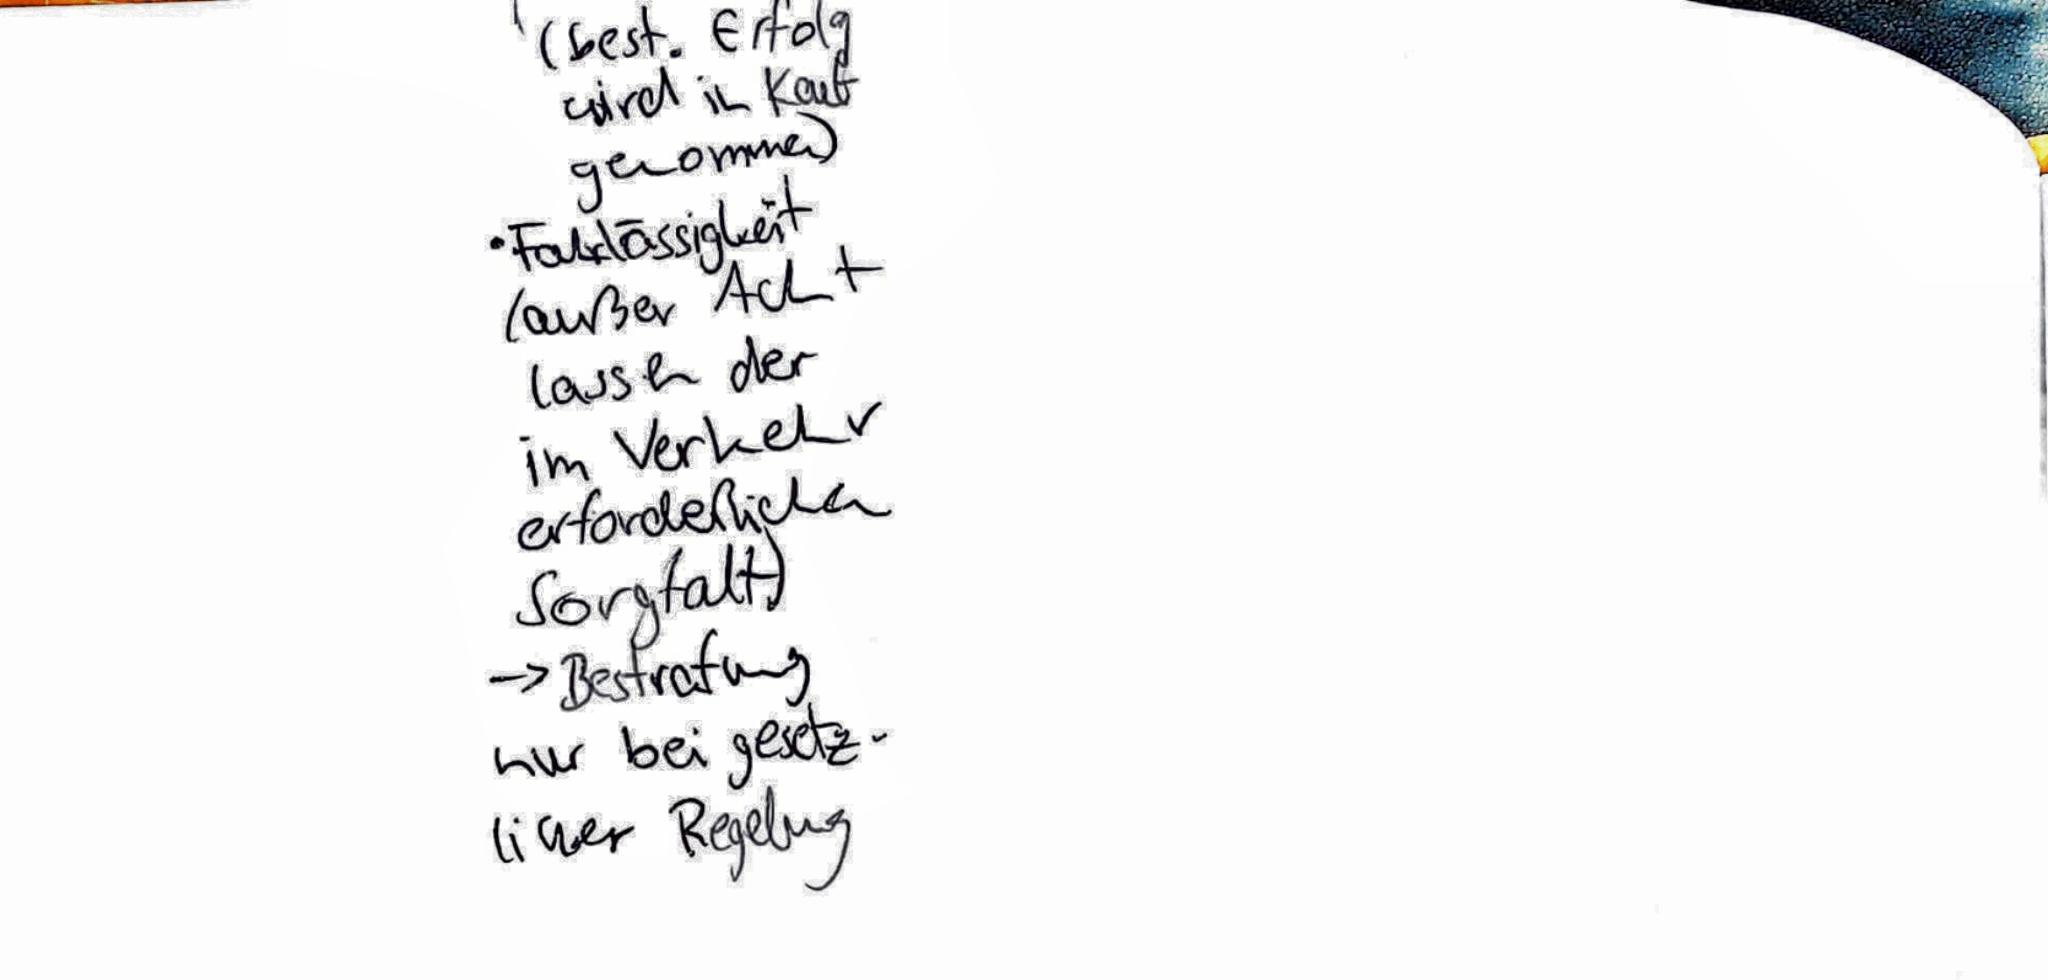 (best. Erfolg
wird in Kauf
genommen)
• Fahrlässigkeit
(außer Acht
lassen der
im Verkehr
erforderlichen
Sorgfalt)
-> Bestrafung
nur bei gesetz-
licher Regelung